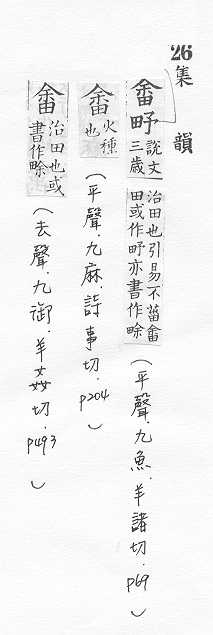 26 集韻
畬㽣 說文三歲治田也引易不菑畬田或作㽣亦書作畭 (平聲.九魚.羊諸切.p69)
畬 火種也 (平聲.九麻.詩車切.p204)
畬 治田也或書作畭 (去聲.九御.羊茹切.p493)